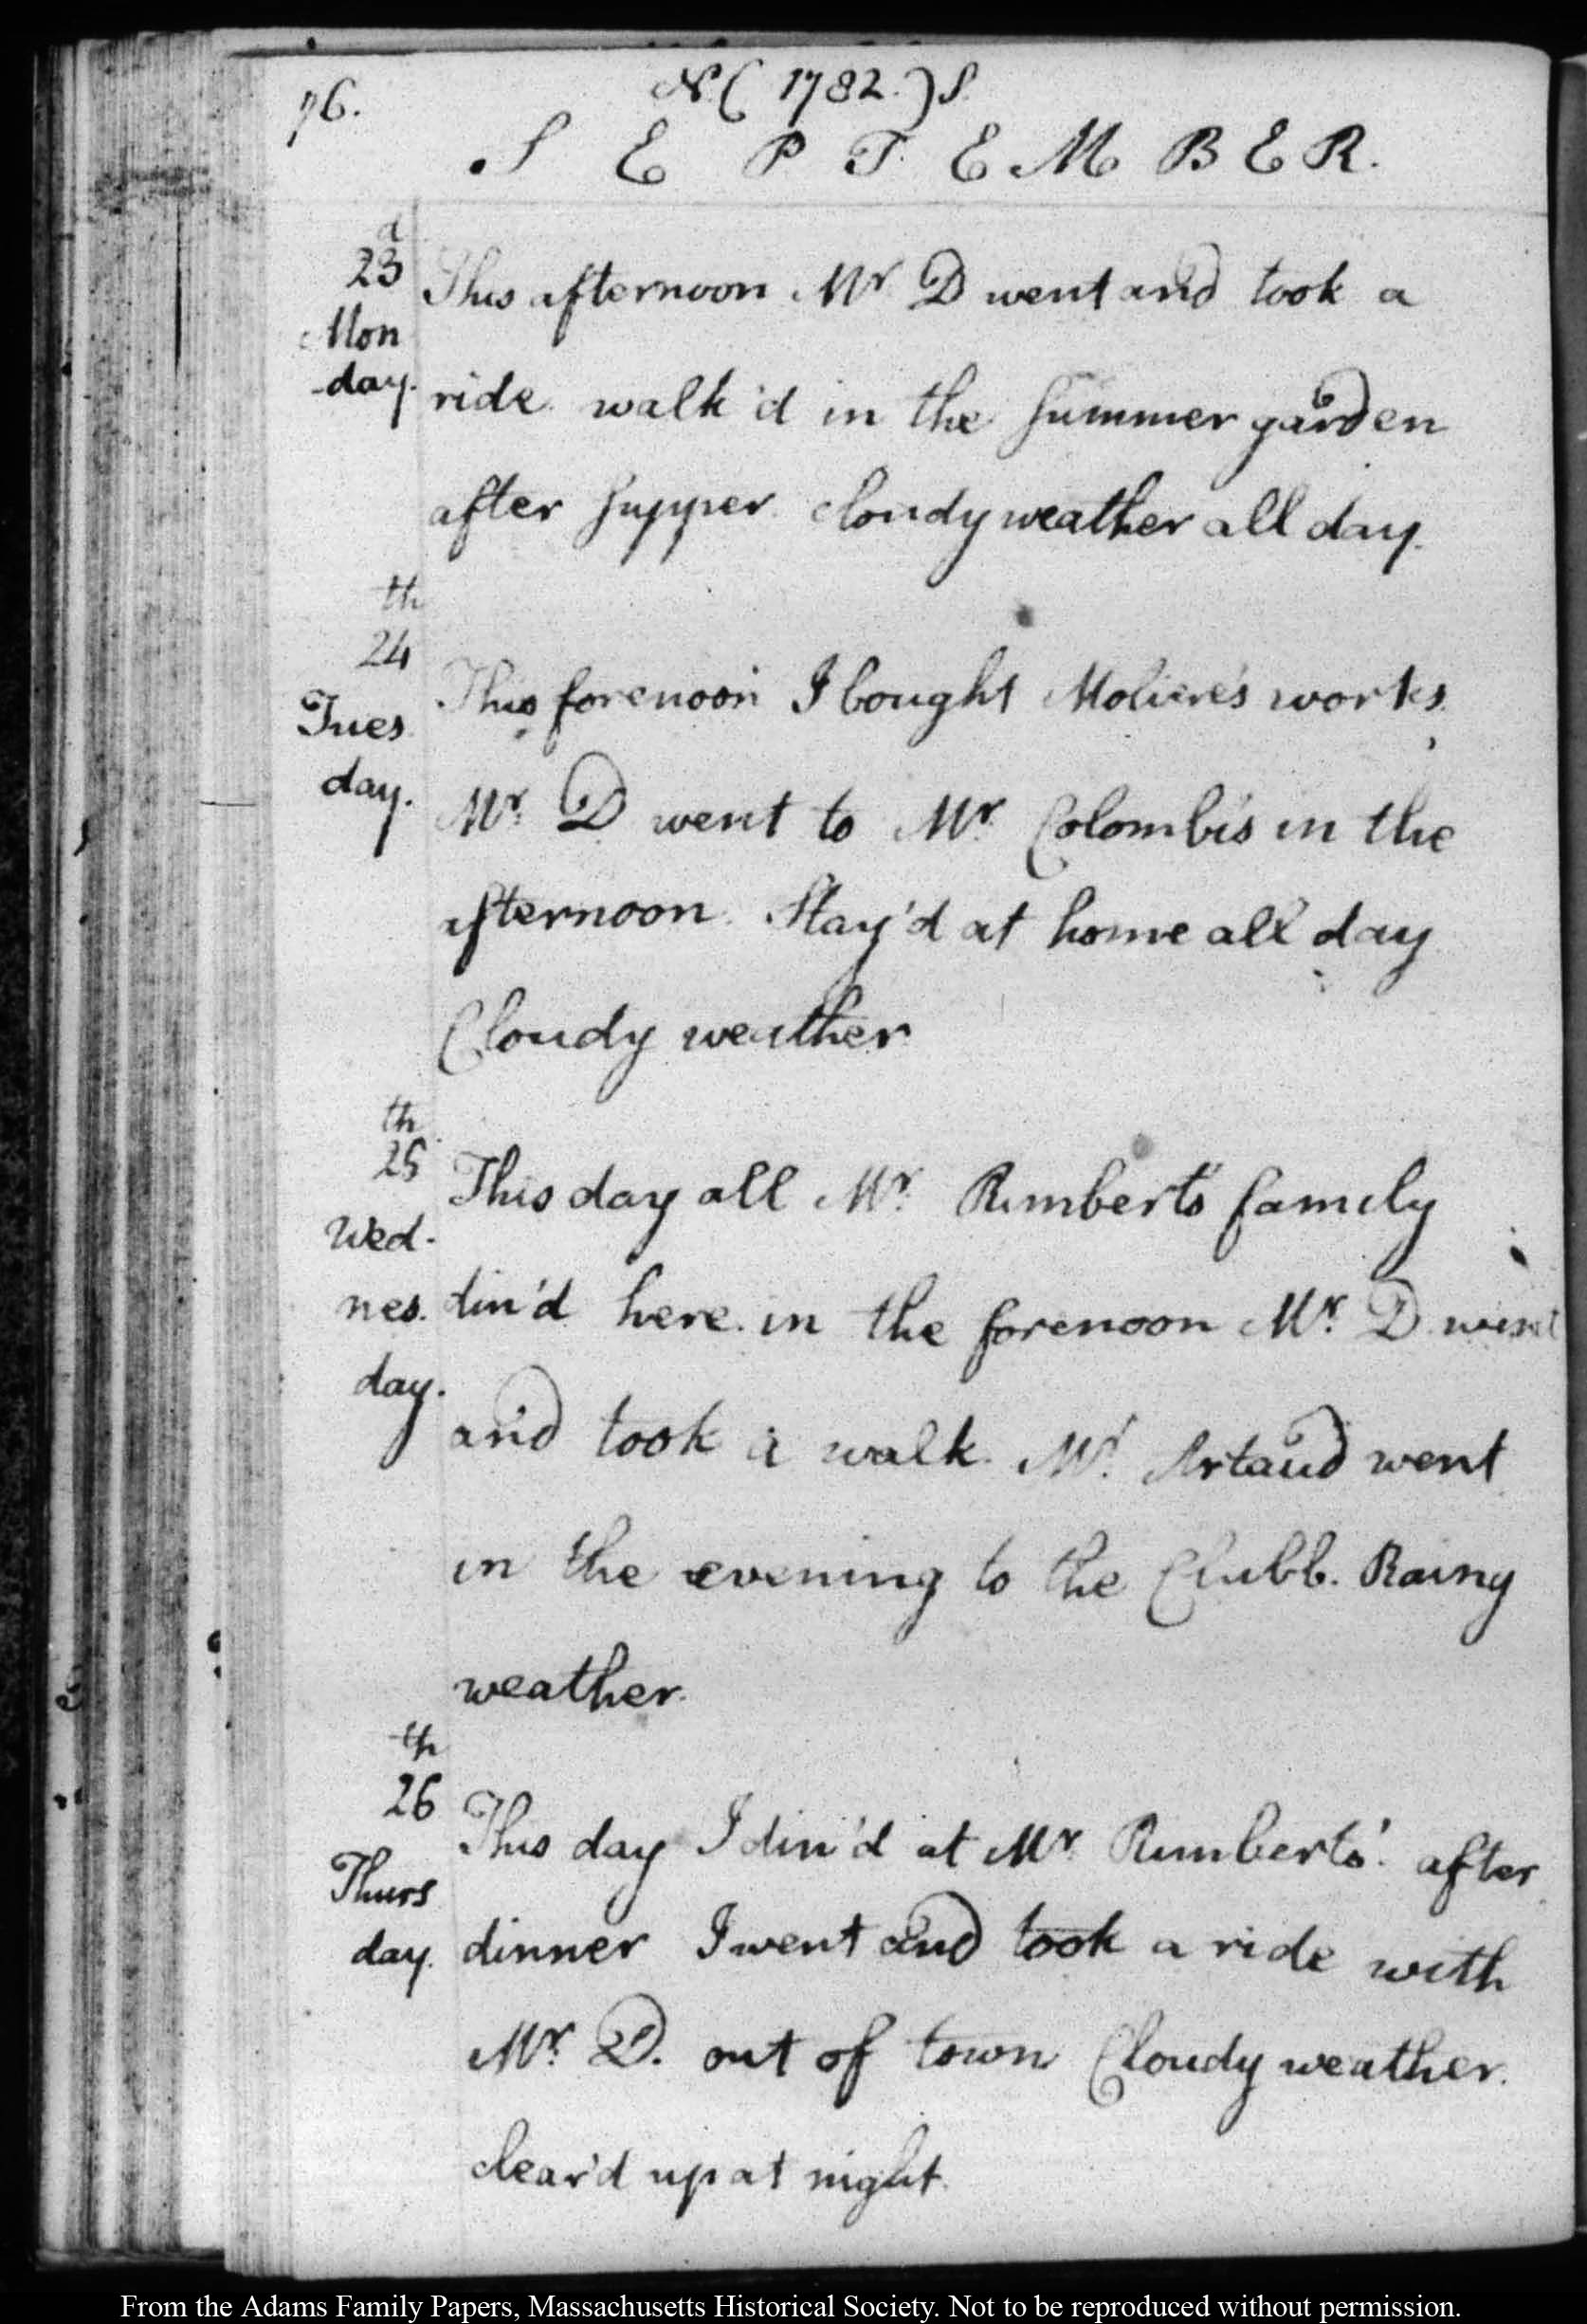 76.
N. ( 1782. ) S.
S E P T E M B E R.
23d
Mon
-day.
This afternoon Mr D went and took a
ride walk'd in the summer garden
after supper cloudy weather all day.
24th
Tues
day.
This forenoon I bought Moliere's works.
Mr. D went to Mr. Colombi's in the
afternoon. Stay'd at home all day
Cloudy weather
25th
Wed-
nes.
day.
This day all Mr. Rimbert's family
din'd here. in the forenoon Mr. D went
and took a walk. Mr. Artaud went
in the evening to the Clubb. Rainy
weather.
26th
Thurs
day.
This day I din'd at Mr. Rimberts'. after
dinner I went and took a ride with
Mr. D. out of town Cloudy weather.
clear'd up at night.
From the Adams Family Papers, Massachusetts Historical Society. Not to be reproduced without permission.